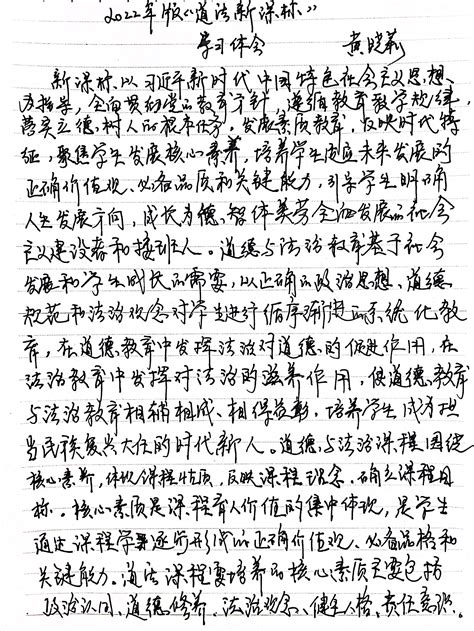 2022年版《道法新课标》
学习体会 黄晓莉
新课标以习近平新时代中国特色社会主义思想
为指导，全面贯彻党的教育方针，遵循教育教学规律，
落实立德树人的根本任务，发展素质教育，反映时代特
征，聚焦学生发展核心素养，培养学生适应未来发展的
正确价值观、必备品质和关键能力，引导学生明确
人生发展方向，成长为德智体美劳全面发展的社会
主义建设者和接班人。道德与法治教育基于社会
发展和学生成长的需要，以正确的政治思想、道德
规范和法治观念对学生进行循序渐进的系统化教
育，在道德教育中发挥法治对道德的促进作用，在
法治教育中发挥对法治的滋养作用，使道德教育
与法治教育相辅相成、相得益彰，培养学生成为担
当民族复兴大任的时代新人。道德与法治课程围绕
核心素养，体现课程性质，反映课程理念，确立课程目
标。核心素质是课程育人价值的集中体现，是学生
通过课程学习逐步形成的正确价值观、必备品格和
关键能力。道法课程要培养的核心素质主要包括
政治认同、道德修养、法治观念、健全人格、责任意识。